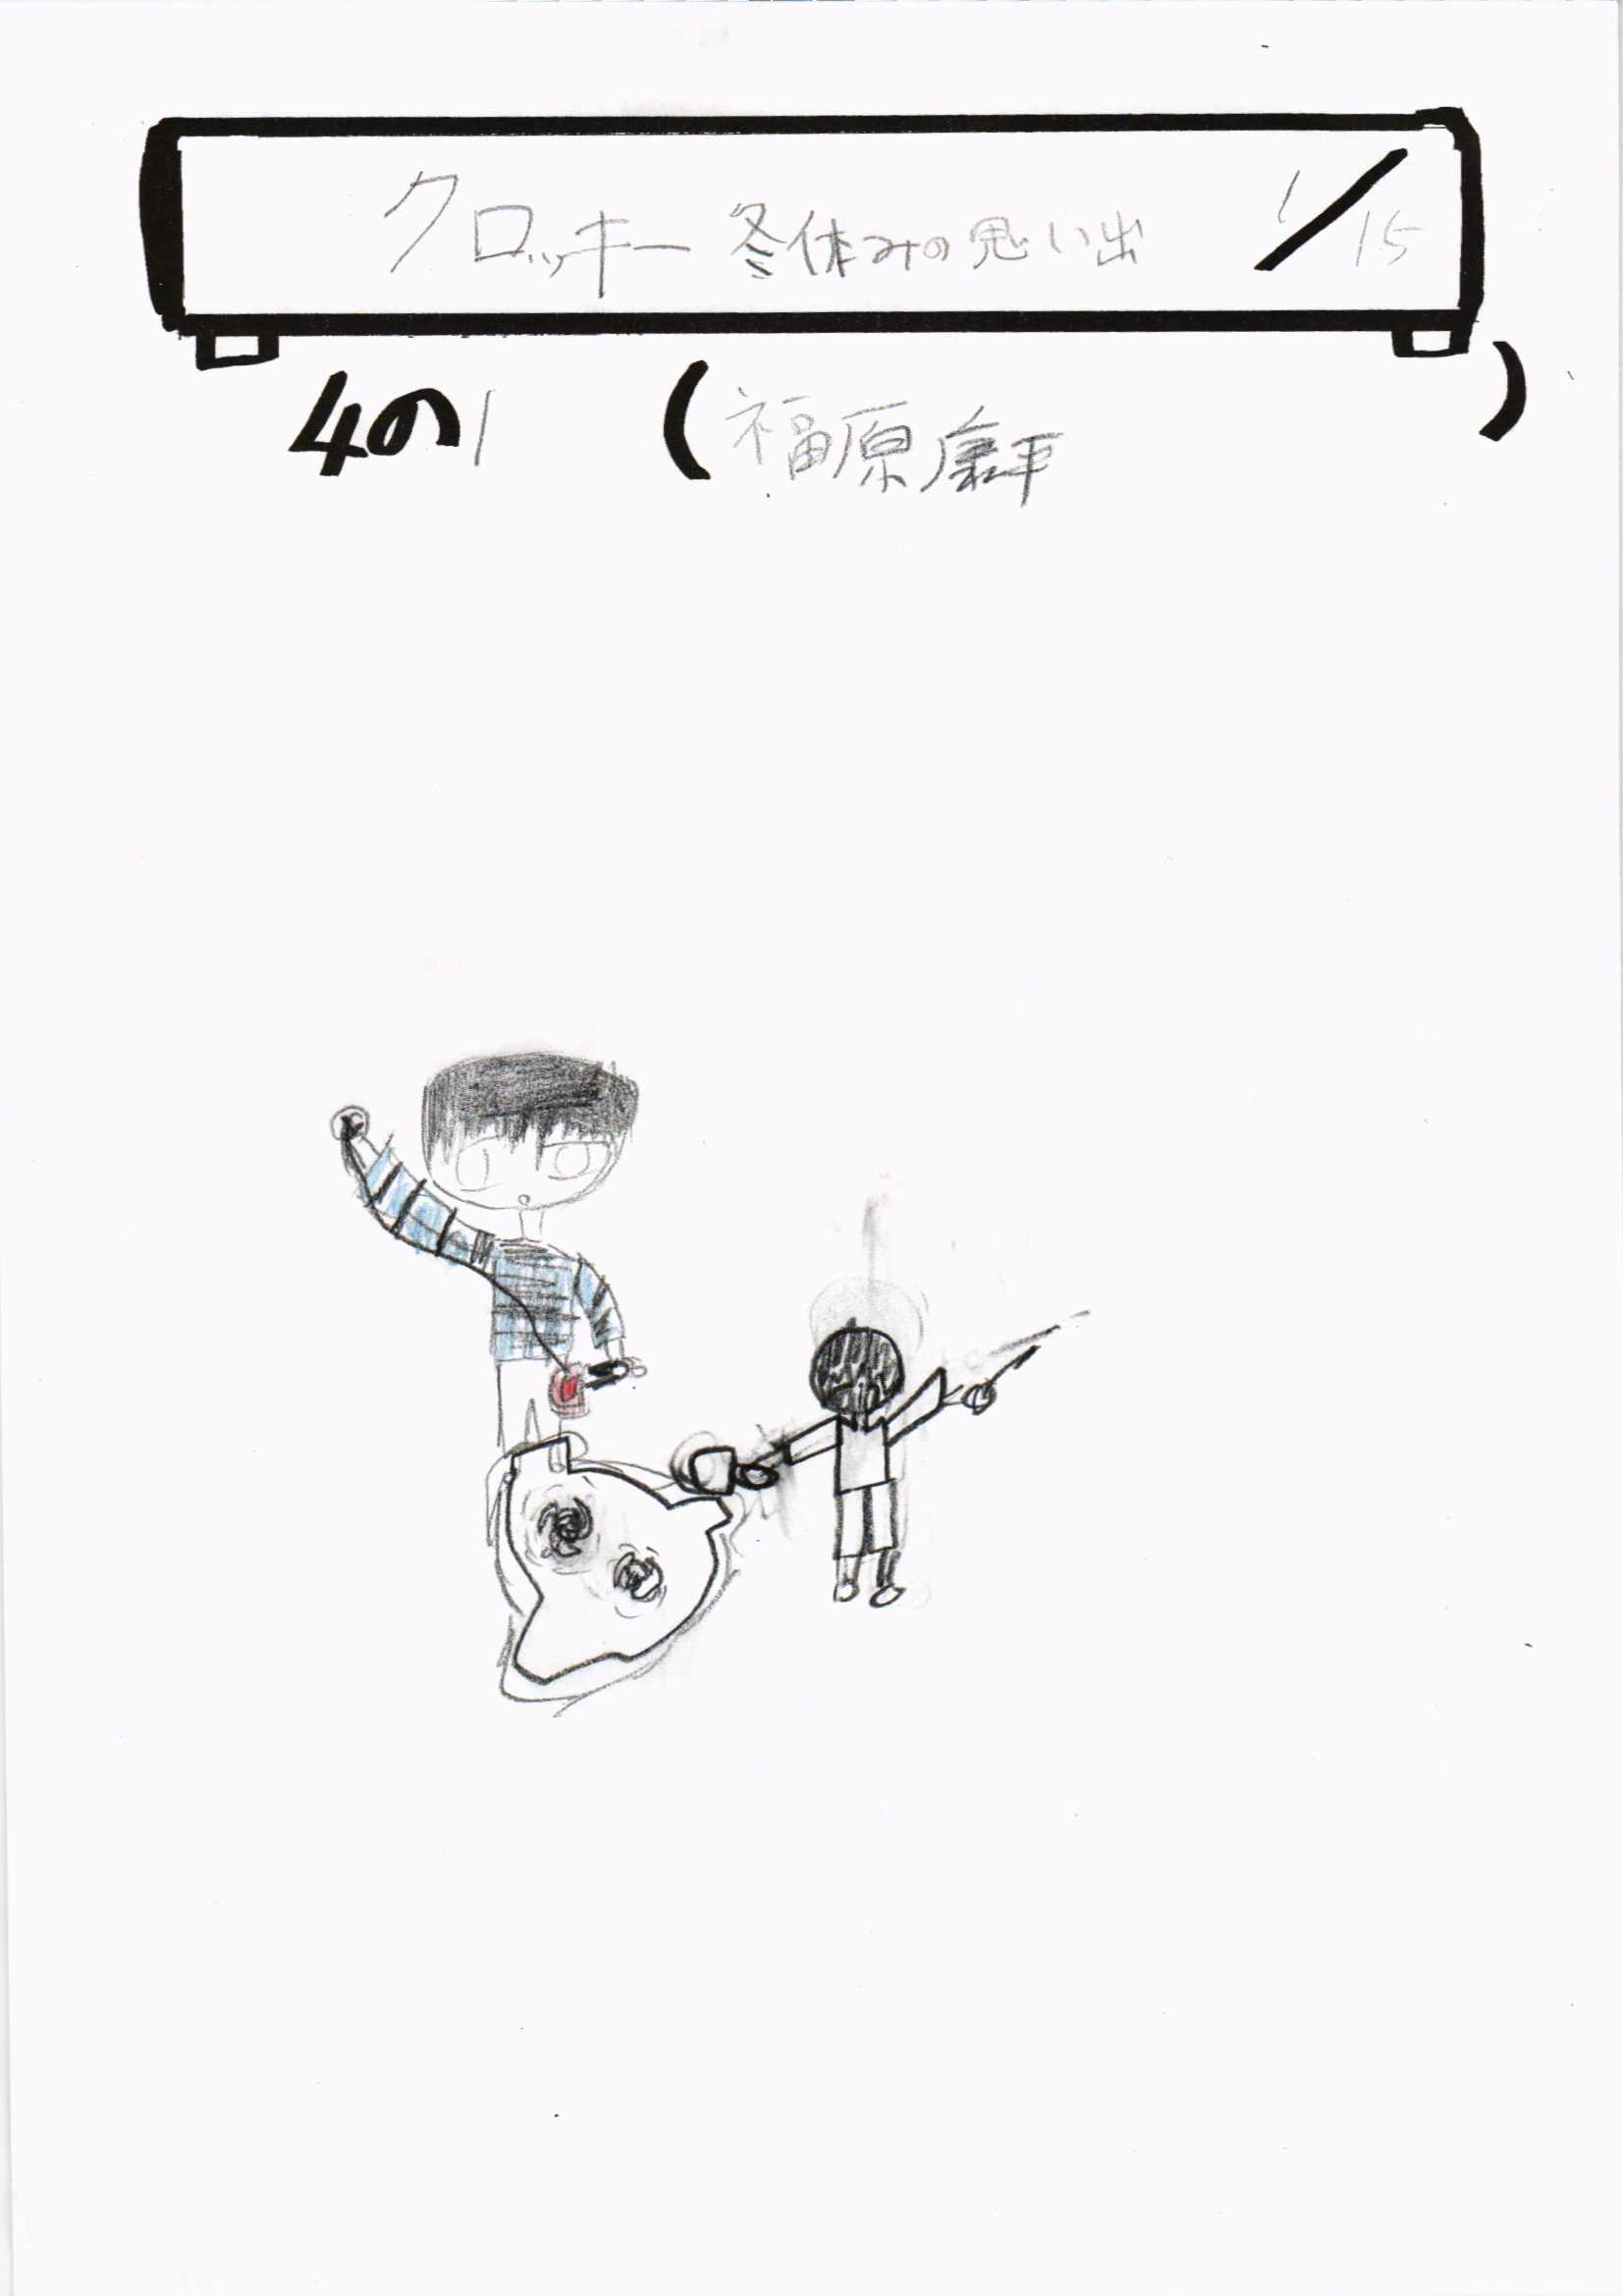 クロッキー 冬休みの思い出 1/15
4の1 (福原康平)